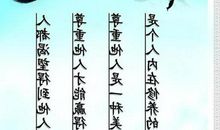 人都渴望得到他人
尊重他人才能赢得
尊重他人是一种美
是个人内在修养的